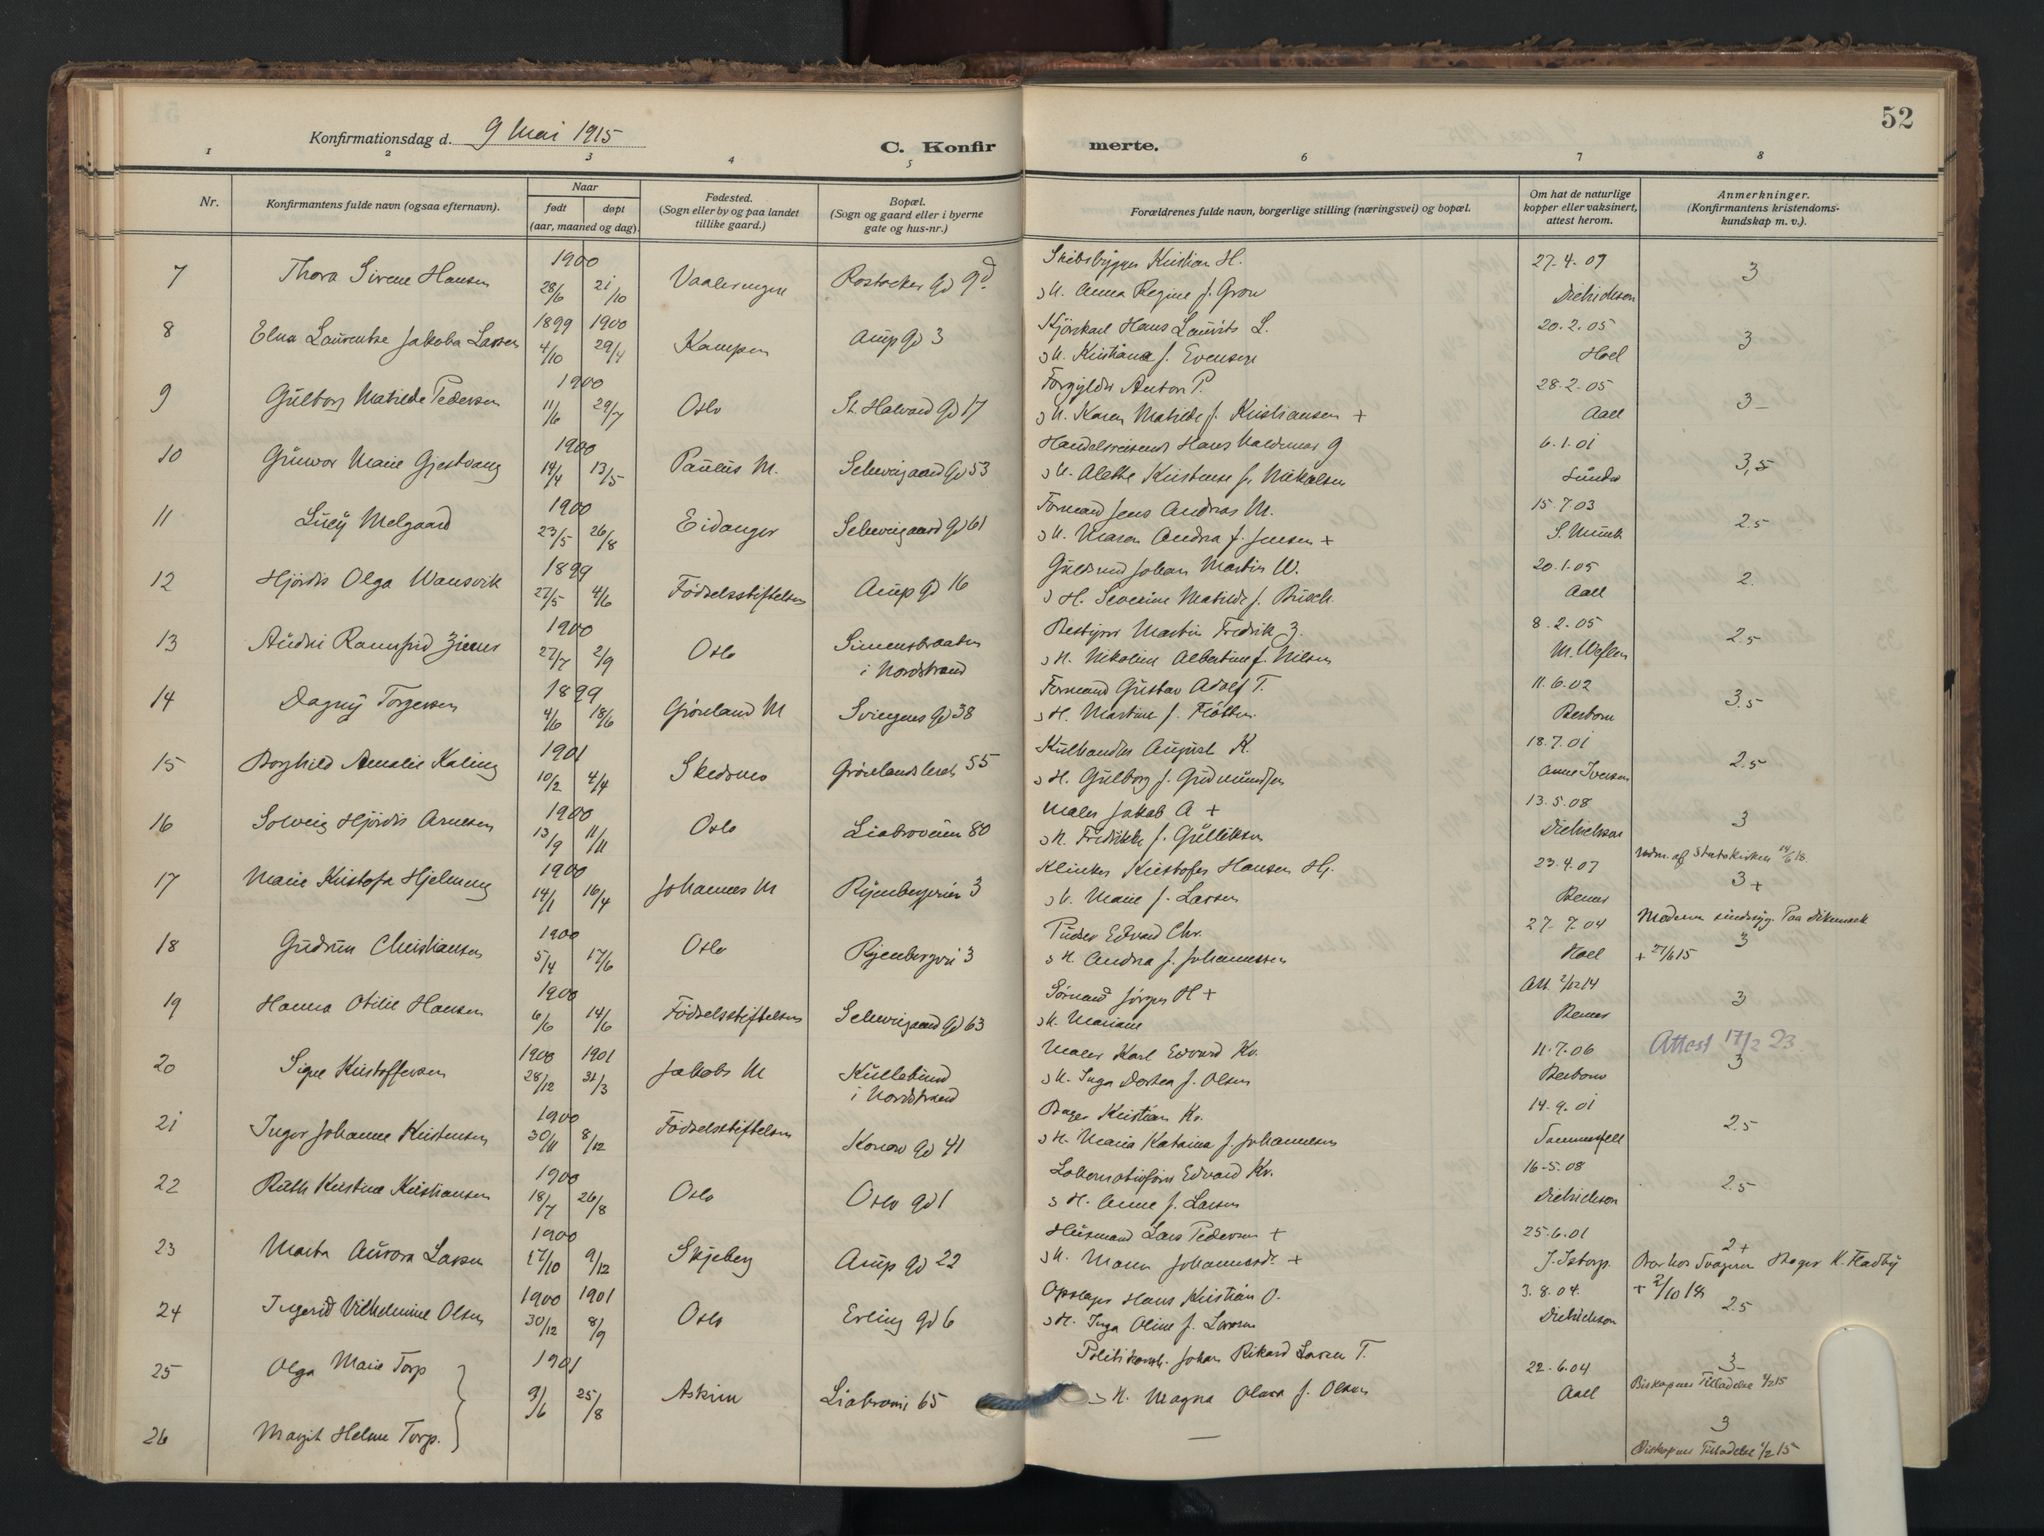 52
Konfirmationsdag d. 9 Mai 1915
C. Konfir
merte.
1 2 3 4 5 6 7 8
Nr.
Konfirmantens fulde navn (ogsaa efternavn).
Naar
født døpt
(aar, maaned og dag).
Fødested.
(Sogn eller by og paa landet
tillike gaard.)
Bopæl.
(Sogn og gaard eller i byerne
gate og hus-nr.)
Forældrenes fulde navn, borgerlige stilling (næringsvei) og bopæl.
Om hat de naturlige
kopper eller vaksinert,
attest herom.
Anmerkninger.
(Konfirmantens kristendoms-
kundskap m. v.).
1900 Kristian H. 27-4-09
7 Thora Sirene Hansen 28/6 21/10 Vaalerengen Rostocker gd 9d. 3
H. Anna Regine f. Grøn Dietrichson
1899 1900 Kjørekarl Hans Lauritz L. 20.2.05
8 Elna Laurentse Jakoba Larsen 4/10 29/4 Kampen Arup gd 3 3
H. Kristiane f. Evensen Hoel
1900 Forgylder Anton P. 28.2.05
9 Gulborg Matilde Pedersen 11/6 29/7 Oslo St. Halvard gd 17 3-
H. Karen Matilde f. Kristiansen + Aall
1900 Handelsreisende Hans Valdemar G 6.1.01
10 Gunvor Marie Gjestvang 14/4 13/5 Paulus M. Schweigaard gd 53 3,5
H. Alette Kristense f. Nikolsen
1900 Formand Jens Andreas M. 15.7.03
11 Lucy Melgaard 23/5 26/8 Eidanger Schweigaard gd 61 2.5
H. Maren Andrea f. Jensen + S. Munch
1899 Guldsmed Johan Martin W. 20.1.05
12 Hjördis Olga Wansvik 27/5 4/6 Födselsstiftelsen Arup gd 16 2.
H. Severine Matilde f. Busch. Aall
1900 Bestyrer Martin Fredrik Z. 8.2.05
13 Audni Ramfrid 27/7 2/9 Oslo Simensbraaten 2.5
i Nordstrand H. Nikoline Albertine f. Nilsen
1899 Formand Gustav Adolf T. 11.6.02
14 Dagny Torgersen 4/6 18/6 Grönland M Sveigens gd 38 3.5
H. Martine f. Berbom
1901 Kulhandler August K. 18.7.01
15 Borghild Amalie Kaling 10/2 4/4 Skedsmo Grönlandsleret 55 2.5
H. Gulborg f. Gudmundsen Anne Iversen
1900 Maler Jakob A + 13.5.08
16 Solveig Hjördis Arnesen 13/9 11/11 Oslo Liabroveien 80 3
H. Fredrikke f. Gulliksen Dietrichson
Udm. af Statskirken 14/6 18.
1900 Klinker Kristofer Hansen Hj. 23.4.07
17 Marie Kristofa Hjelmeng 14/1 16/4 Johannes M Ryenbergveien 3 3+
H. Marie f. Larsen Berner
Moderen sindssyg. Paa Dikemark
1900 Pudser Edvard Chr. 27-7.04
18 Gudrun Christiansen 5/4 17/6 Oslo Ryenbergvei 3 3
H. Andrea f. Johannessen Hoel + 27/6 15
1900 Sömand Jörgen H + Att. 2/12 14
19 Hanna Otilie Hansen 6/6 14/6 Födselsstiftelsen Schweigaard gd 63 3
H. Mariane Berner
Attest 17/2 23.
1900 1901 Maler Karl Edvard Kr. 11.7.06
20 Signe Kristoffersen 28/12 31/3 Jakobs M Kullebund 3
i Nordstrand H. Inga Dortea f. Olsen Berbom
1900 Bager Kristian Kr. 14.9.01
21 Inger Johanne Kristensen 30/11 8/12 Födselsstiftelsen Konow gd 41 2.5
H. Maria Katrina f. Johannesen Tommesfjell
1900 Lokomotivförer Edvard Kr. 16-5.08
22 Ruth Kristine Kristiansen 18/7 26/8 Oslo Oslo gd 1 2.5
H. Anne f. Larsen Dietrichson
1900 Husmand Lars Pedersen + 25.6.01
23 Marta Aurora Larsen 17/10 9/12 Skjeberg Arup gd 22 2+
H. Maren Johannesdr. + J. Istorp. Bor hos Svogeren K. Fladby
1900 1901 Opslager Hans Kristian O. 3.8.04. + 2/10 18
24 Ingerid Vilhelmine Olsen 30/12 8/9 Oslo Erling gd 6 2.5
H. Inga Oline f. Larsen Dietrichson
1901 Politikonst. Johan Rikard Larsen T. 22.6.04
25 Olga Marie Torp 9/6 25/8 Askim Liabrovei 65 3-
H. Magna Olava f. Olsen Aall Biskopens Tilladelse 1/2 15
26 Margit Helene Torp. — 3
Biskopens Tilladelse 1/2 15